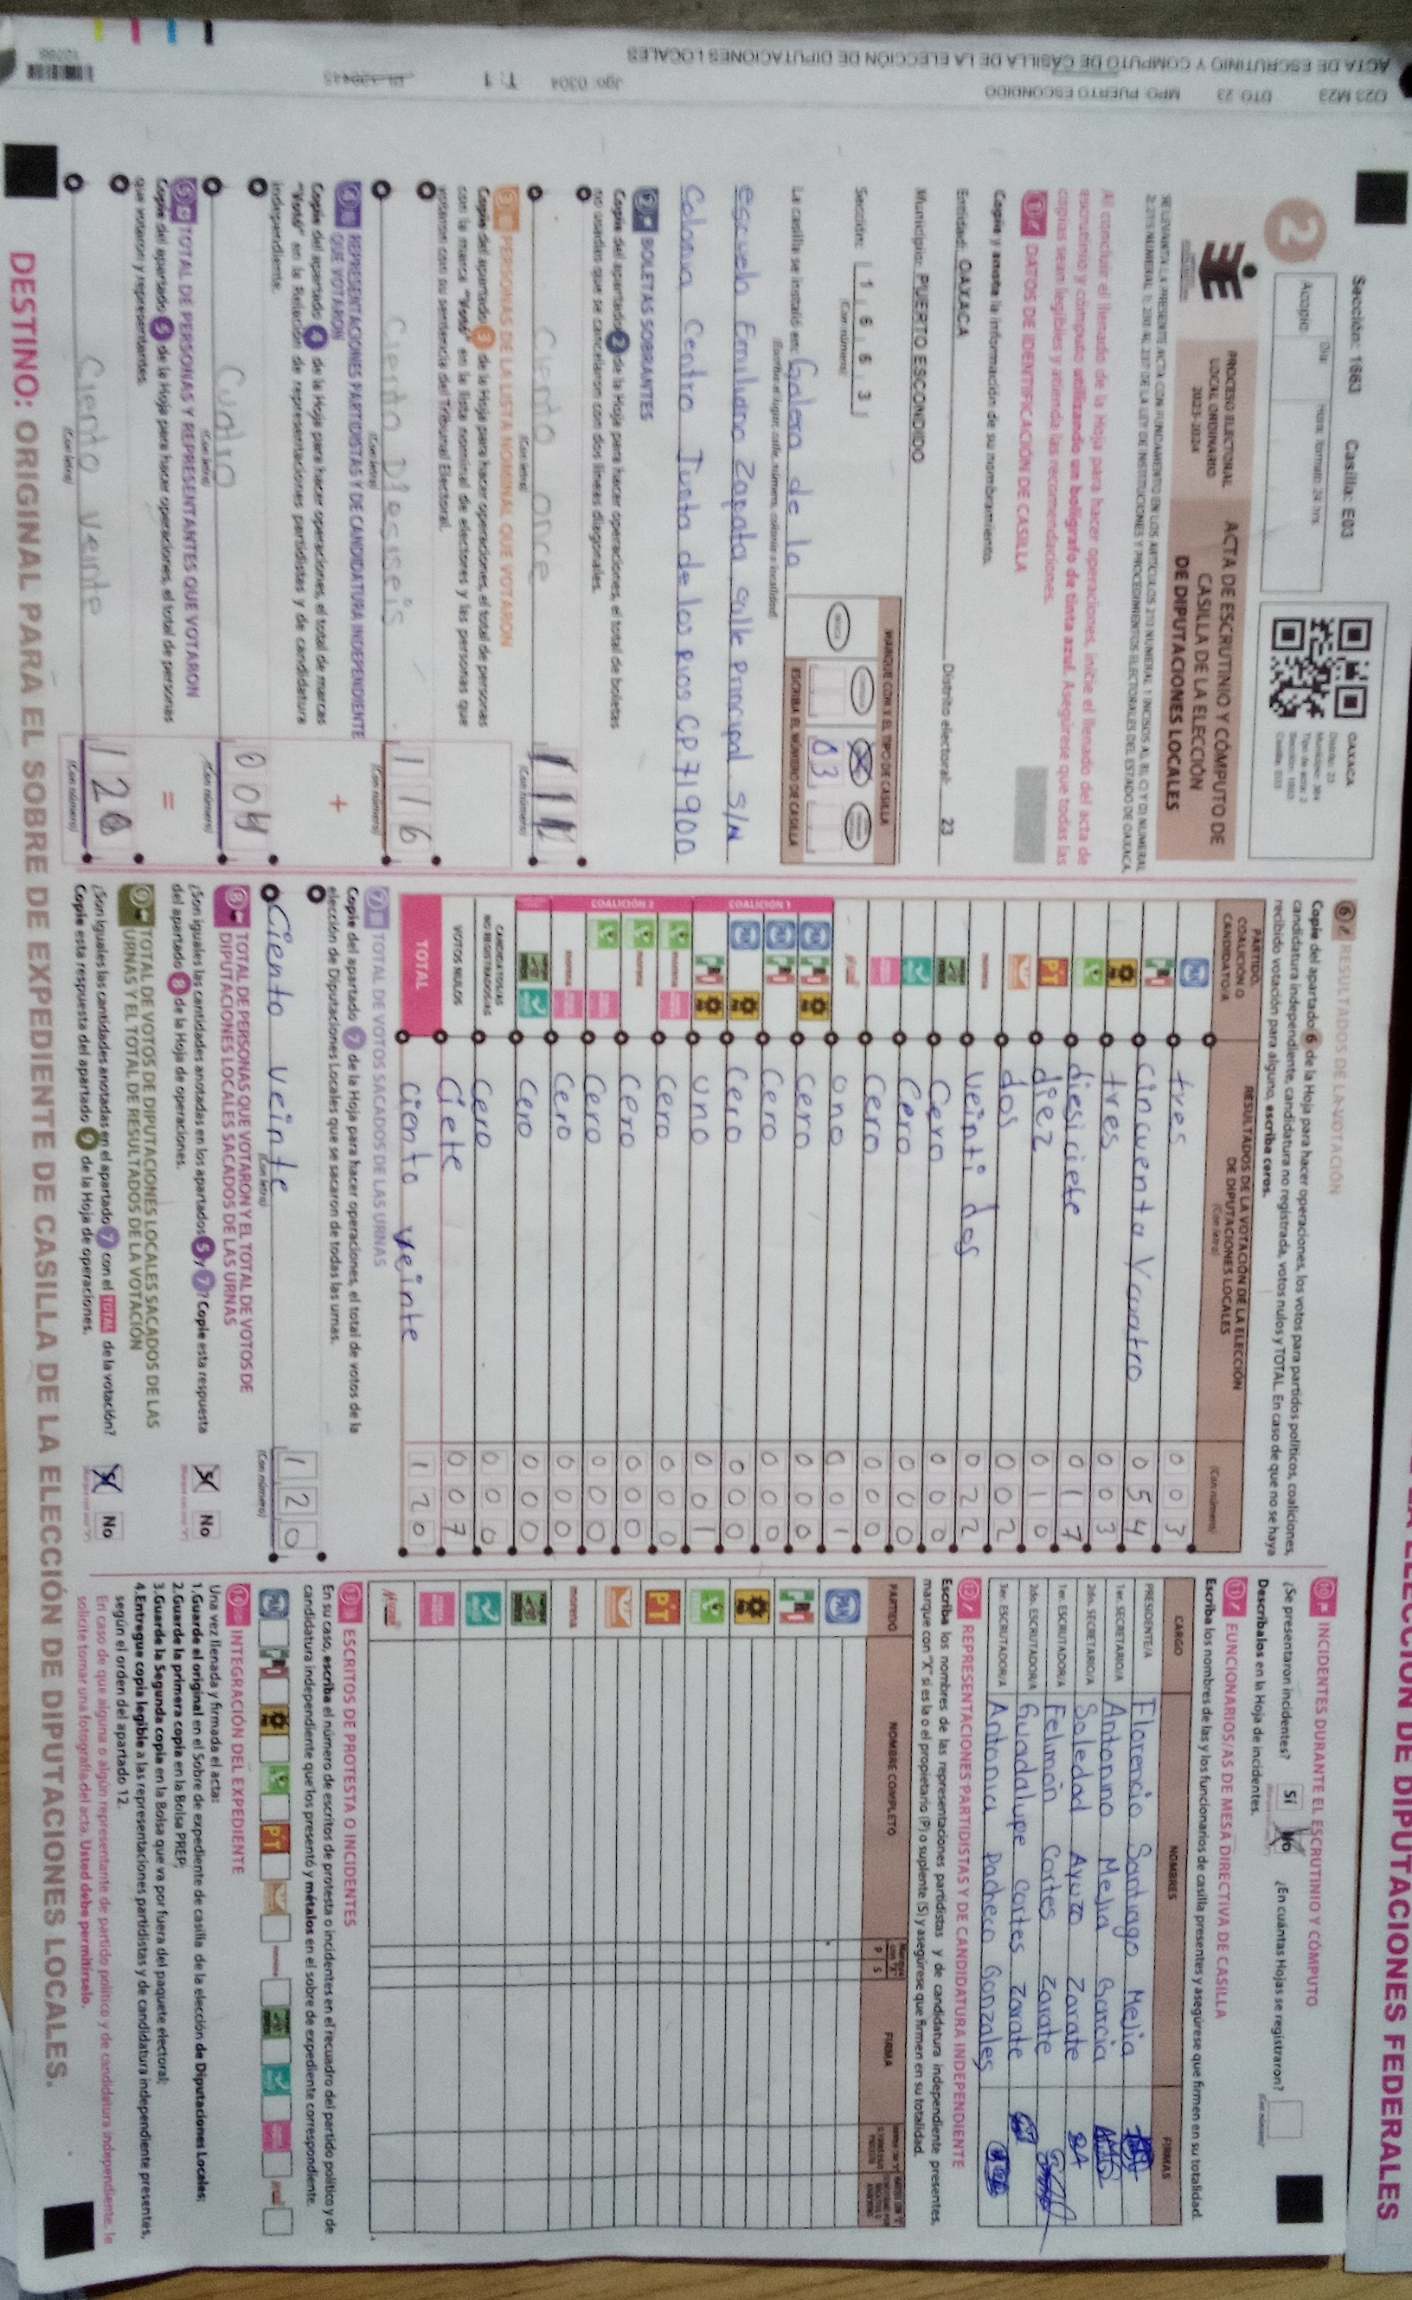 LA ELECCIÓN DE DIPUTACIONES FEDERALES
ACTA DE ESCRUTINIO Y CÓMPUTO DE CASILLA DE LA ELECCIÓN DE DIPUTACIONES LOCALES
O23 M23 DTO 23 MPO PUERTO ESCONDIDO
Jgo: 0304 T: 1
Sección: 1663 Casilla: E03
2
Acopio:
Día
Hora, formato 24 hrs.
OAXACA
Distrito: 23
PROCESO ELECTORAL
LOCAL ORDINARIO
2023-2024
ACTA DE ESCRUTINIO Y CÓMPUTO DE
CASILLA DE LA ELECCIÓN
DE DIPUTACIONES LOCALES
Al concluir el llenado de la Hoja para hacer operaciones, inicie el llenado del acta de
escrutinio y cómputo utilizando un bolígrafo de tinta azul. Asegúrese que todas las
copias sean legibles y atienda las recomendaciones.
1 DATOS DE IDENTIFICACIÓN DE CASILLA
Copie y anote la información de su nombramiento.
Entidad: OAXACA Distrito electoral: 23
Municipio: PUERTO ESCONDIDO
Sección: 1 6 6 3
(Con número)
MARQUE CON X EL TIPO DE CASILLA
03
ESCRIBA EL NÚMERO DE CASILLA
La casilla se instaló en: Galera de la
(Escriba el lugar, calle, número, colonia o localidad)
escuela Emiliano Zapata calle Principal S/N
Colonia Centro Tusta de los Rios CP 71900
2 BOLETAS SOBRANTES
Copie del apartado 2 de la Hoja para hacer operaciones, el total de boletas
no usadas que se cancelaron con dos líneas diagonales.
Ciento once 111
(Con letra) (Con número)
3 PERSONAS DE LA LISTA NOMINAL QUE VOTARON
Copie del apartado 3 de la Hoja para hacer operaciones, el total de personas
con la marca "Votó" en la lista nominal de electores y las personas que
votaron con su sentencia del Tribunal Electoral.
Ciento Dieciseis 116
(Con letra) (Con número)
+
4 REPRESENTACIONES PARTIDISTAS Y DE CANDIDATURA INDEPENDIENTE
QUE VOTARON
Copie del apartado 4 de la Hoja para hacer operaciones, el total de marcas
"Votó" en la Relación de representaciones partidistas y de candidatura
independiente.
Cuatro 004
(Con letra) (Con número)
=
5 TOTAL DE PERSONAS Y REPRESENTANTES QUE VOTARON
Copie del apartado 5 de la Hoja para hacer operaciones, el total de personas
que votaron y representantes.
Ciento veinte 120
(Con letra) (Con número)
6 RESULTADOS DE LA VOTACIÓN
Copie del apartado 6 de la Hoja para hacer operaciones, los votos para partidos políticos, coaliciones,
candidatura independiente, candidatura no registrada, votos nulos y TOTAL. En caso de que no se haya
recibido votación para alguno, escriba ceros.
PARTIDO, COALICIÓN O CANDIDATO/A
RESULTADOS DE LA VOTACIÓN DE LA ELECCIÓN
DE DIPUTACIONES LOCALES
(Con letra) (Con número)
PAN tres 003
PRI cincuenta Vcuatro 054
PRD tres 003
diesiciete 017
PT diez 010
dos 002
morena veinti dos 022
Cero 000
Cero 000
Cero 000
ono 001
COALICIÓN 1
PAN PRI PRD cero 000
PAN PRI Cero 000
PAN PRD Cero 000
PRI PRD uno 001
COALICIÓN 2
cero 000
cero 000
Cero 000
Cero 000
Cero 000
CANDIDATOS/AS
NO REGISTRADOS/AS Cero 000
VOTOS NULOS Ciete 007
TOTAL Ciento veinte 120
7 TOTAL DE VOTOS SACADOS DE LAS URNAS
Copie del apartado 7 de la Hoja para hacer operaciones, el total de votos de la
elección de Diputaciones Locales que se sacaron de todas las urnas.
Ciento veinte 120
(Con letra) (Con número)
8 TOTAL DE PERSONAS QUE VOTARON Y EL TOTAL DE VOTOS DE
DIPUTACIONES LOCALES SACADOS DE LAS URNAS
¿Son iguales las cantidades anotadas en los apartados 5 y 7? Copie esta respuesta
del apartado 8 de la Hoja de operaciones.
No
9 TOTAL DE VOTOS DE DIPUTACIONES LOCALES SACADOS DE LAS
URNAS Y EL TOTAL DE RESULTADOS DE LA VOTACIÓN
¿Son iguales las cantidades anotadas en el apartado 7 con el TOTAL de la votación?
Copie esta respuesta del apartado 9 de la Hoja de operaciones.
No
10 INCIDENTES DURANTE EL ESCRUTINIO Y CÓMPUTO
¿Se presentaron incidentes? Sí No ¿En cuántas Hojas se registraron?
(Con número)
Descríbalos en la Hoja de incidentes.
11 FUNCIONARIOS/AS DE MESA DIRECTIVA DE CASILLA
Escriba los nombres de las y los funcionarios de casilla presentes y asegúrese que firmen en su totalidad.
CARGO NOMBRES FIRMAS
PRESIDENTE/A Florencio Santiago Mejia
1er. SECRETARIO/A Antonino Mejia Garcia
2do. SECRETARIO/A Soledad Ayuzo Zarate SA
1er. ESCRUTADOR/A Felimón Cortes Zarate
2do. ESCRUTADOR/A Guadalupe Cortes Zarate
3er. ESCRUTADOR/A Antonia Pacheco Gonzales
12 REPRESENTACIONES PARTIDISTAS Y DE CANDIDATURA INDEPENDIENTE
Escriba los nombres de las representaciones partidistas y de candidatura independiente presentes,
marque con "X" si es la o el propietario (P) o suplente (S) y asegúrese que firmen en su totalidad.
PARTIDO NOMBRE COMPLETO P S FIRMA
PAN
PRI
PRD
PT
morena
13 ESCRITOS DE PROTESTA O INCIDENTES
En su caso, escriba el número de escritos de protesta o incidentes en el recuadro del partido político y de
candidatura independiente que los presentó y métalos en el sobre de expediente correspondiente.
14 INTEGRACIÓN DEL EXPEDIENTE
Una vez llenada y firmada el acta:
1.Guarde el original en el Sobre de expediente de casilla de la elección de Diputaciones Locales;
2.Guarde la primera copia en la Bolsa PREP;
3.Guarde la Segunda copia en la Bolsa que va por fuera del paquete electoral;
4.Entregue copia legible a las representaciones partidistas y de candidatura independiente presentes,
según el orden del apartado 12.
En caso de que alguna o algún representante de partido político y de candidatura independiente, le
solicite tomar una fotografía del acta. Usted debe permitírselo.
DESTINO: ORIGINAL PARA EL SOBRE DE EXPEDIENTE DE CASILLA DE LA ELECCIÓN DE DIPUTACIONES LOCALES.